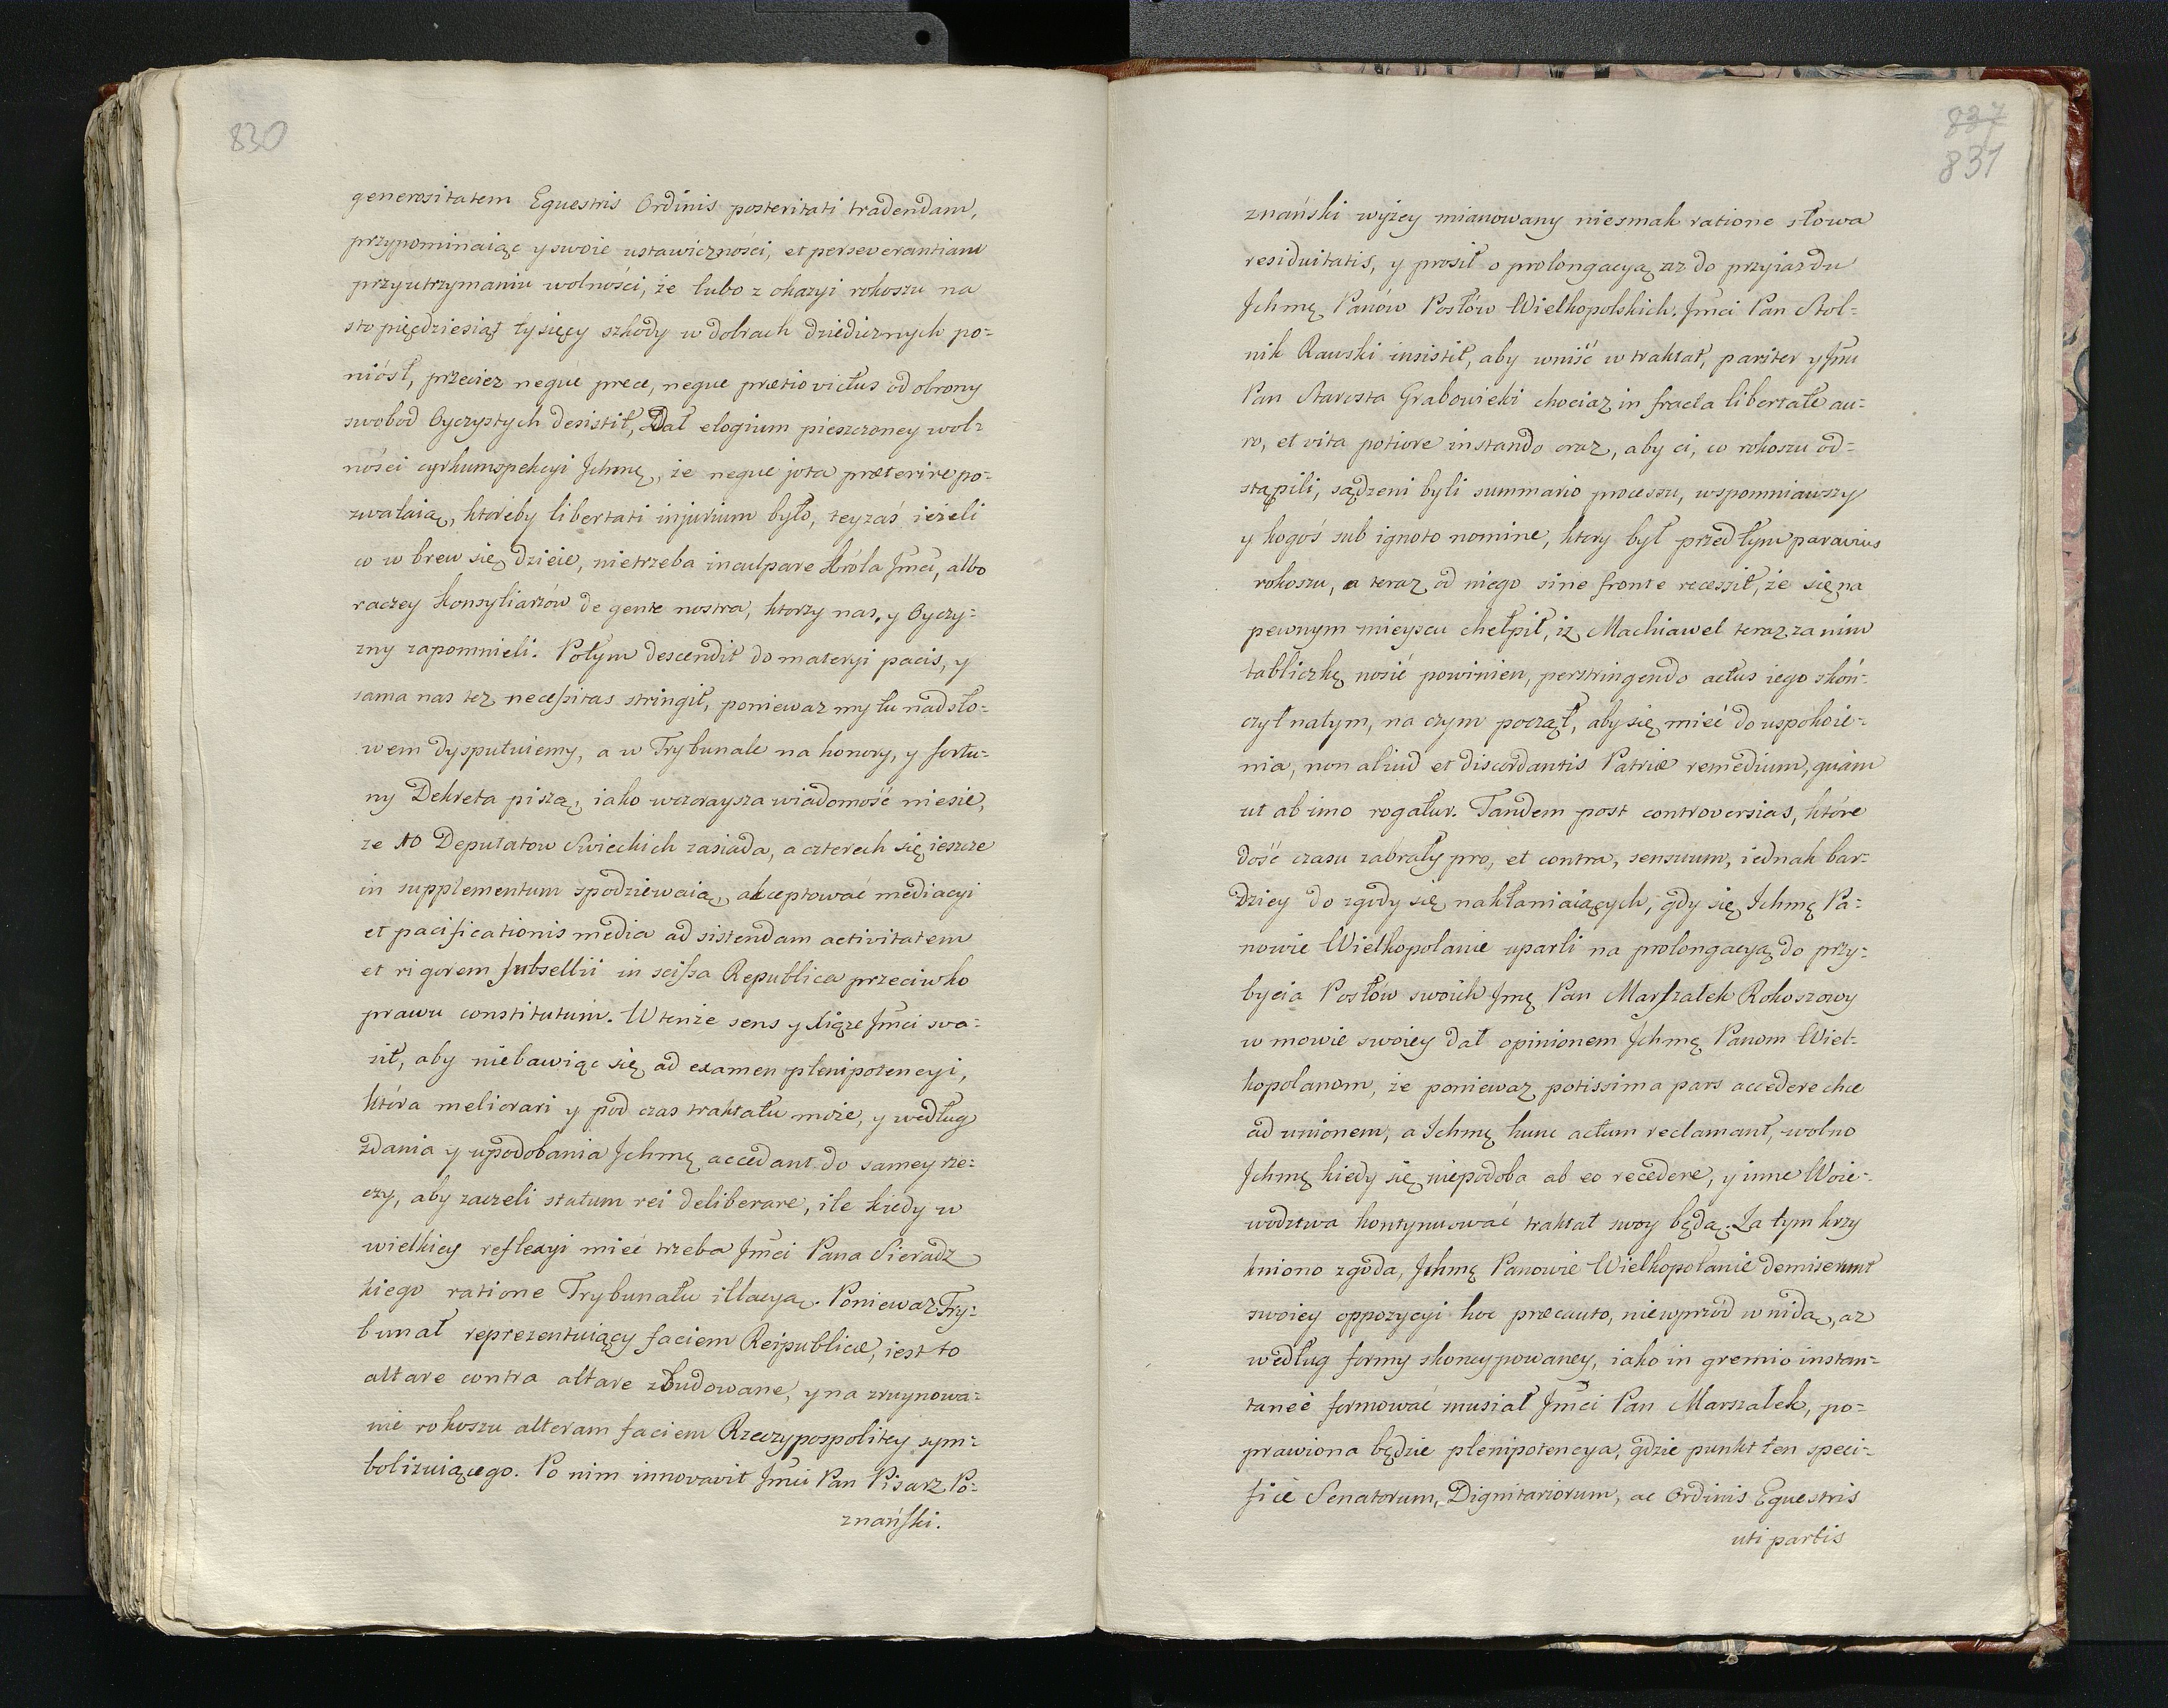 830
generositatem Equestris Ordinis posteritati tradendam,
przypominaiąc y swoie ustawiczności, et perseverantiam
przy utrzymaniu wolności, że lubo z okazyi rokoszu na
sto pięćdziesiąt tysięcy szkody w dobrach dziedicznych po=
niósł, przeciez neque prece, neque prætio victus od obrony
swobod Oyczystych desistit, Dał elogium pieszczoney wol=
ności cyrkumspekcyi Jchmę, że neque jota præterire po=
zwalaią, ktoreby libertati injurium było, teyzaś ieżeli
co w brew się dzieie, nietrzeba inculpare Króla Jmci, albo
raczey Konsyliarzów de gente nostra, ktorzy nas, y Oyczy=
zny zapomnieli. Potym descendit do materyi pacis, y
sama nas tez necessitas stringit, poniewaz my tu nad sło=
wem dysputuiemy, a w Trybunale na honory, y fortu=
ny Dekreta piszą, iako wczoraysza wiadomość niesie,
ze 10 Deputatow Swieckich zasiada, a czterech się ieszcze
in supplementum spodziewaią, akceptować mediacyi
et pacificationis media ad sistendam activitatem
et rigorem subsellii in scissa Republica przeciwko
prawu constitutum. W tenże sens y Xiąże Jmci swa=
sit, aby niebawiąc się ad examen plenipotencyi,
która meliorari y pod czas traktatu może, y według
zdania y upodobania Jchmę accedant do samey rze=
czy, aby zaczeli statum rei deliberare, ile kiedy w
wielkiey reflexyi mieć trzeba Jmci Pana Sieradz
kiego ratione Trybunału illacyą. Poniewaz Try=
bunał reprezentuiący faciem Reipublicæ, iest to
altare contra altare zbudowane, y na zruynowa=
nie rokoszu alteram faciem Rzeczypospolitey sym=
bolizuiącego. Po nim innovavit Jmci Pan Pisarz Po=
znański.
837
831
znański wyżey mianowany niesmak ratione słowa
residuitatis, y prosił o prolongacyą az do przyiazdu
Jchmę Panów Posłów Wielkopolskich. Jmci Pan Stol=
nik Rawski insistit, aby wniść w traktat, pariter y Jmci
Pan Starosta Grabowiecki chociaz in fracta libertate au=
ro, et vita potiore instando oraz, aby ci, co rokoszu od=
stąpili, sądzeni byli summario processu, wspomniawszy
y kogoś sub ignoto nomine, ktory był przed tym
rokoszu, a teraz od niego sine fronte recessit, że się na
pewnym mieyscu chełpił, iz Machiawel teraz za nim
tabliczkę nosić powinien, perstringendo actus iego skoń=
czył na tym, na czym począł, aby się mieć do uspokoie=
nia, non aliud et discordantis Patriæ remedium, quam
ut ab imo rogatur. Tandem post controversias, które
dość czasu zabrały pro, et contra, sensuum, iednak bar=
dziey do zgody się nakłaniaiących, gdy się Jchmę Pa=
nowie Wielkopolanie uparli na prolongacyą do przy=
bycia Posłów swoich Jmę Pan Marszałek Rokoszowy
w mowie swoiey dał opinionem Jchmę Panom Wiel=
kopolanom, że poniewaz potissima pars accedere chce
ad unionem, a Jchmę hunc actum reclamant, wolno
Jchmę kiedy się niepodoba ab eo recedere, y inne Woie=
wodztwa kontynuować traktat swoy będą. Za tym krzy
kniono zgoda, Jchmę Panowie Wielkopolanie demiserunt
swoiey oppozycyi hoc præcauto, nie wprzód wnidą, az
według formy skoncypowaney, iako in gremio instan=
taneé formować musiał Jmci Pan Marszałek, po=
prawiona będzie plenipotencya, gdzie punkt ten speci=
ficé Senatorum, Dignitariorum, ac Ordinis Equestris
uti partis